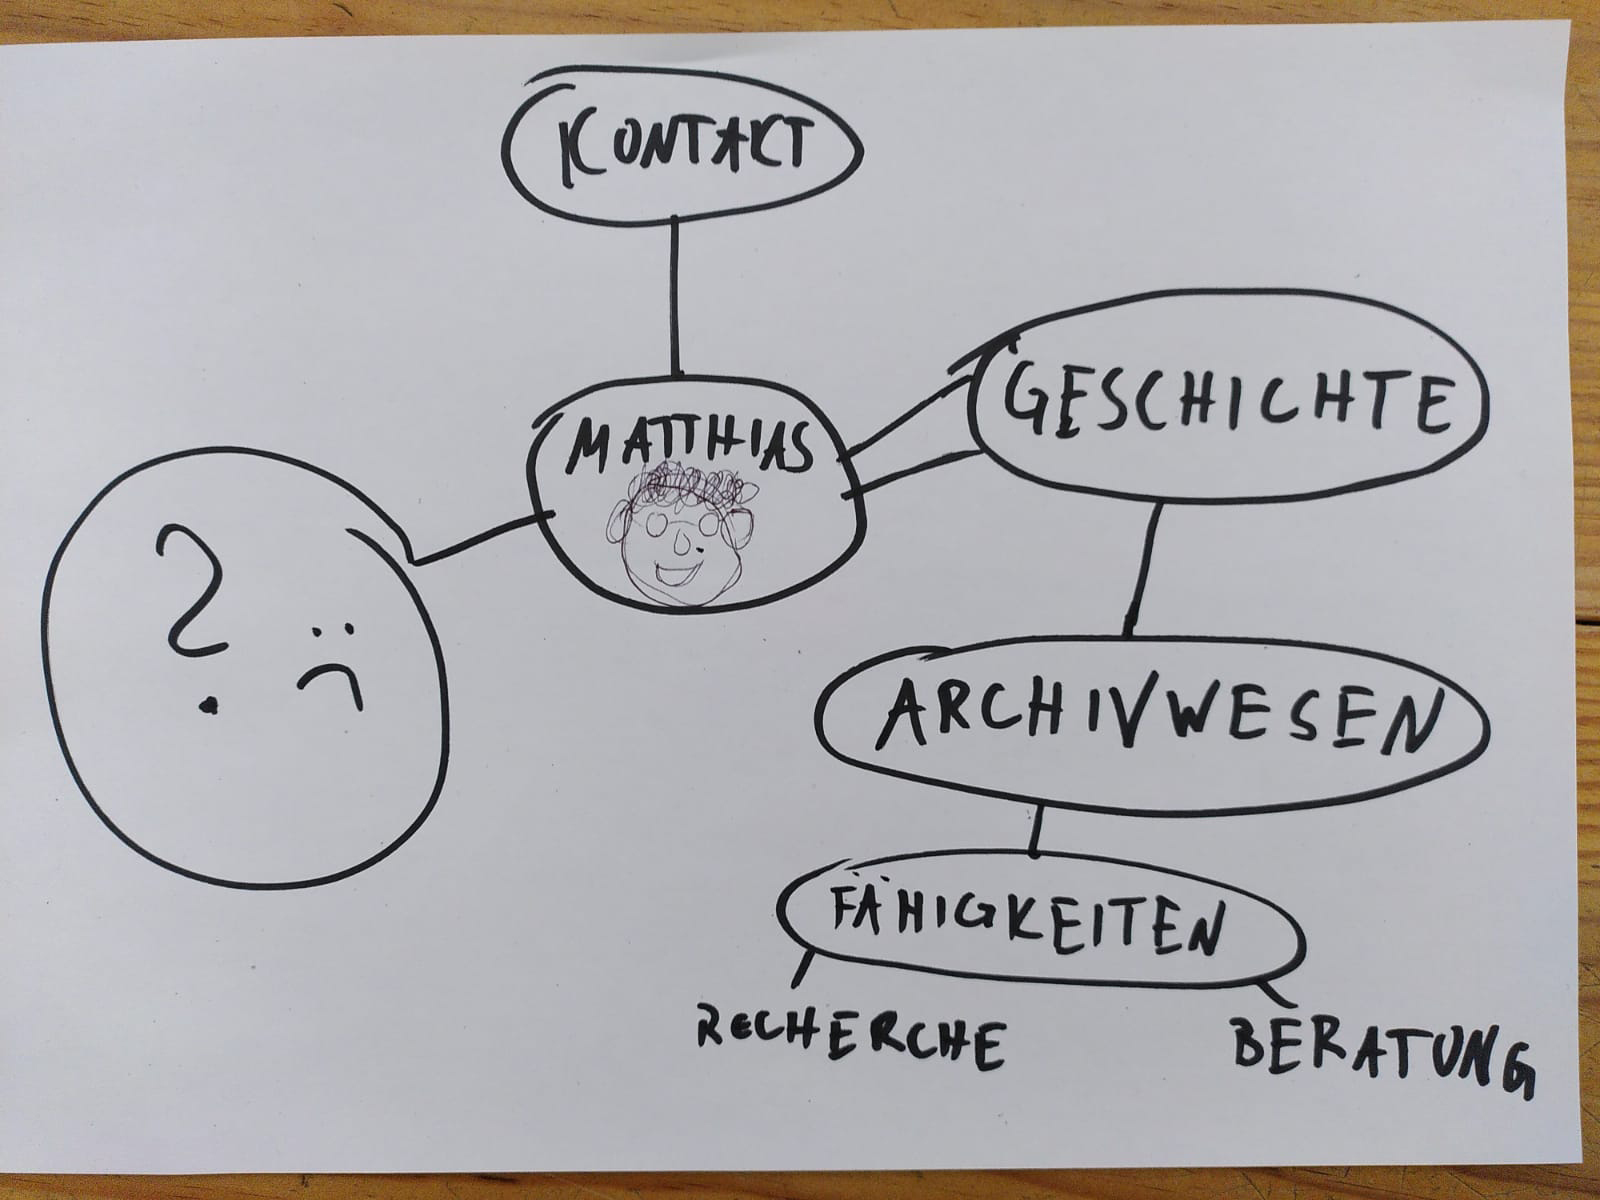 KONTAKT
MATTHIAS
GESCHICHTE
?
ARCHIVWESEN
FÄHIGKEITEN
RECHERCHE
BERATUNG